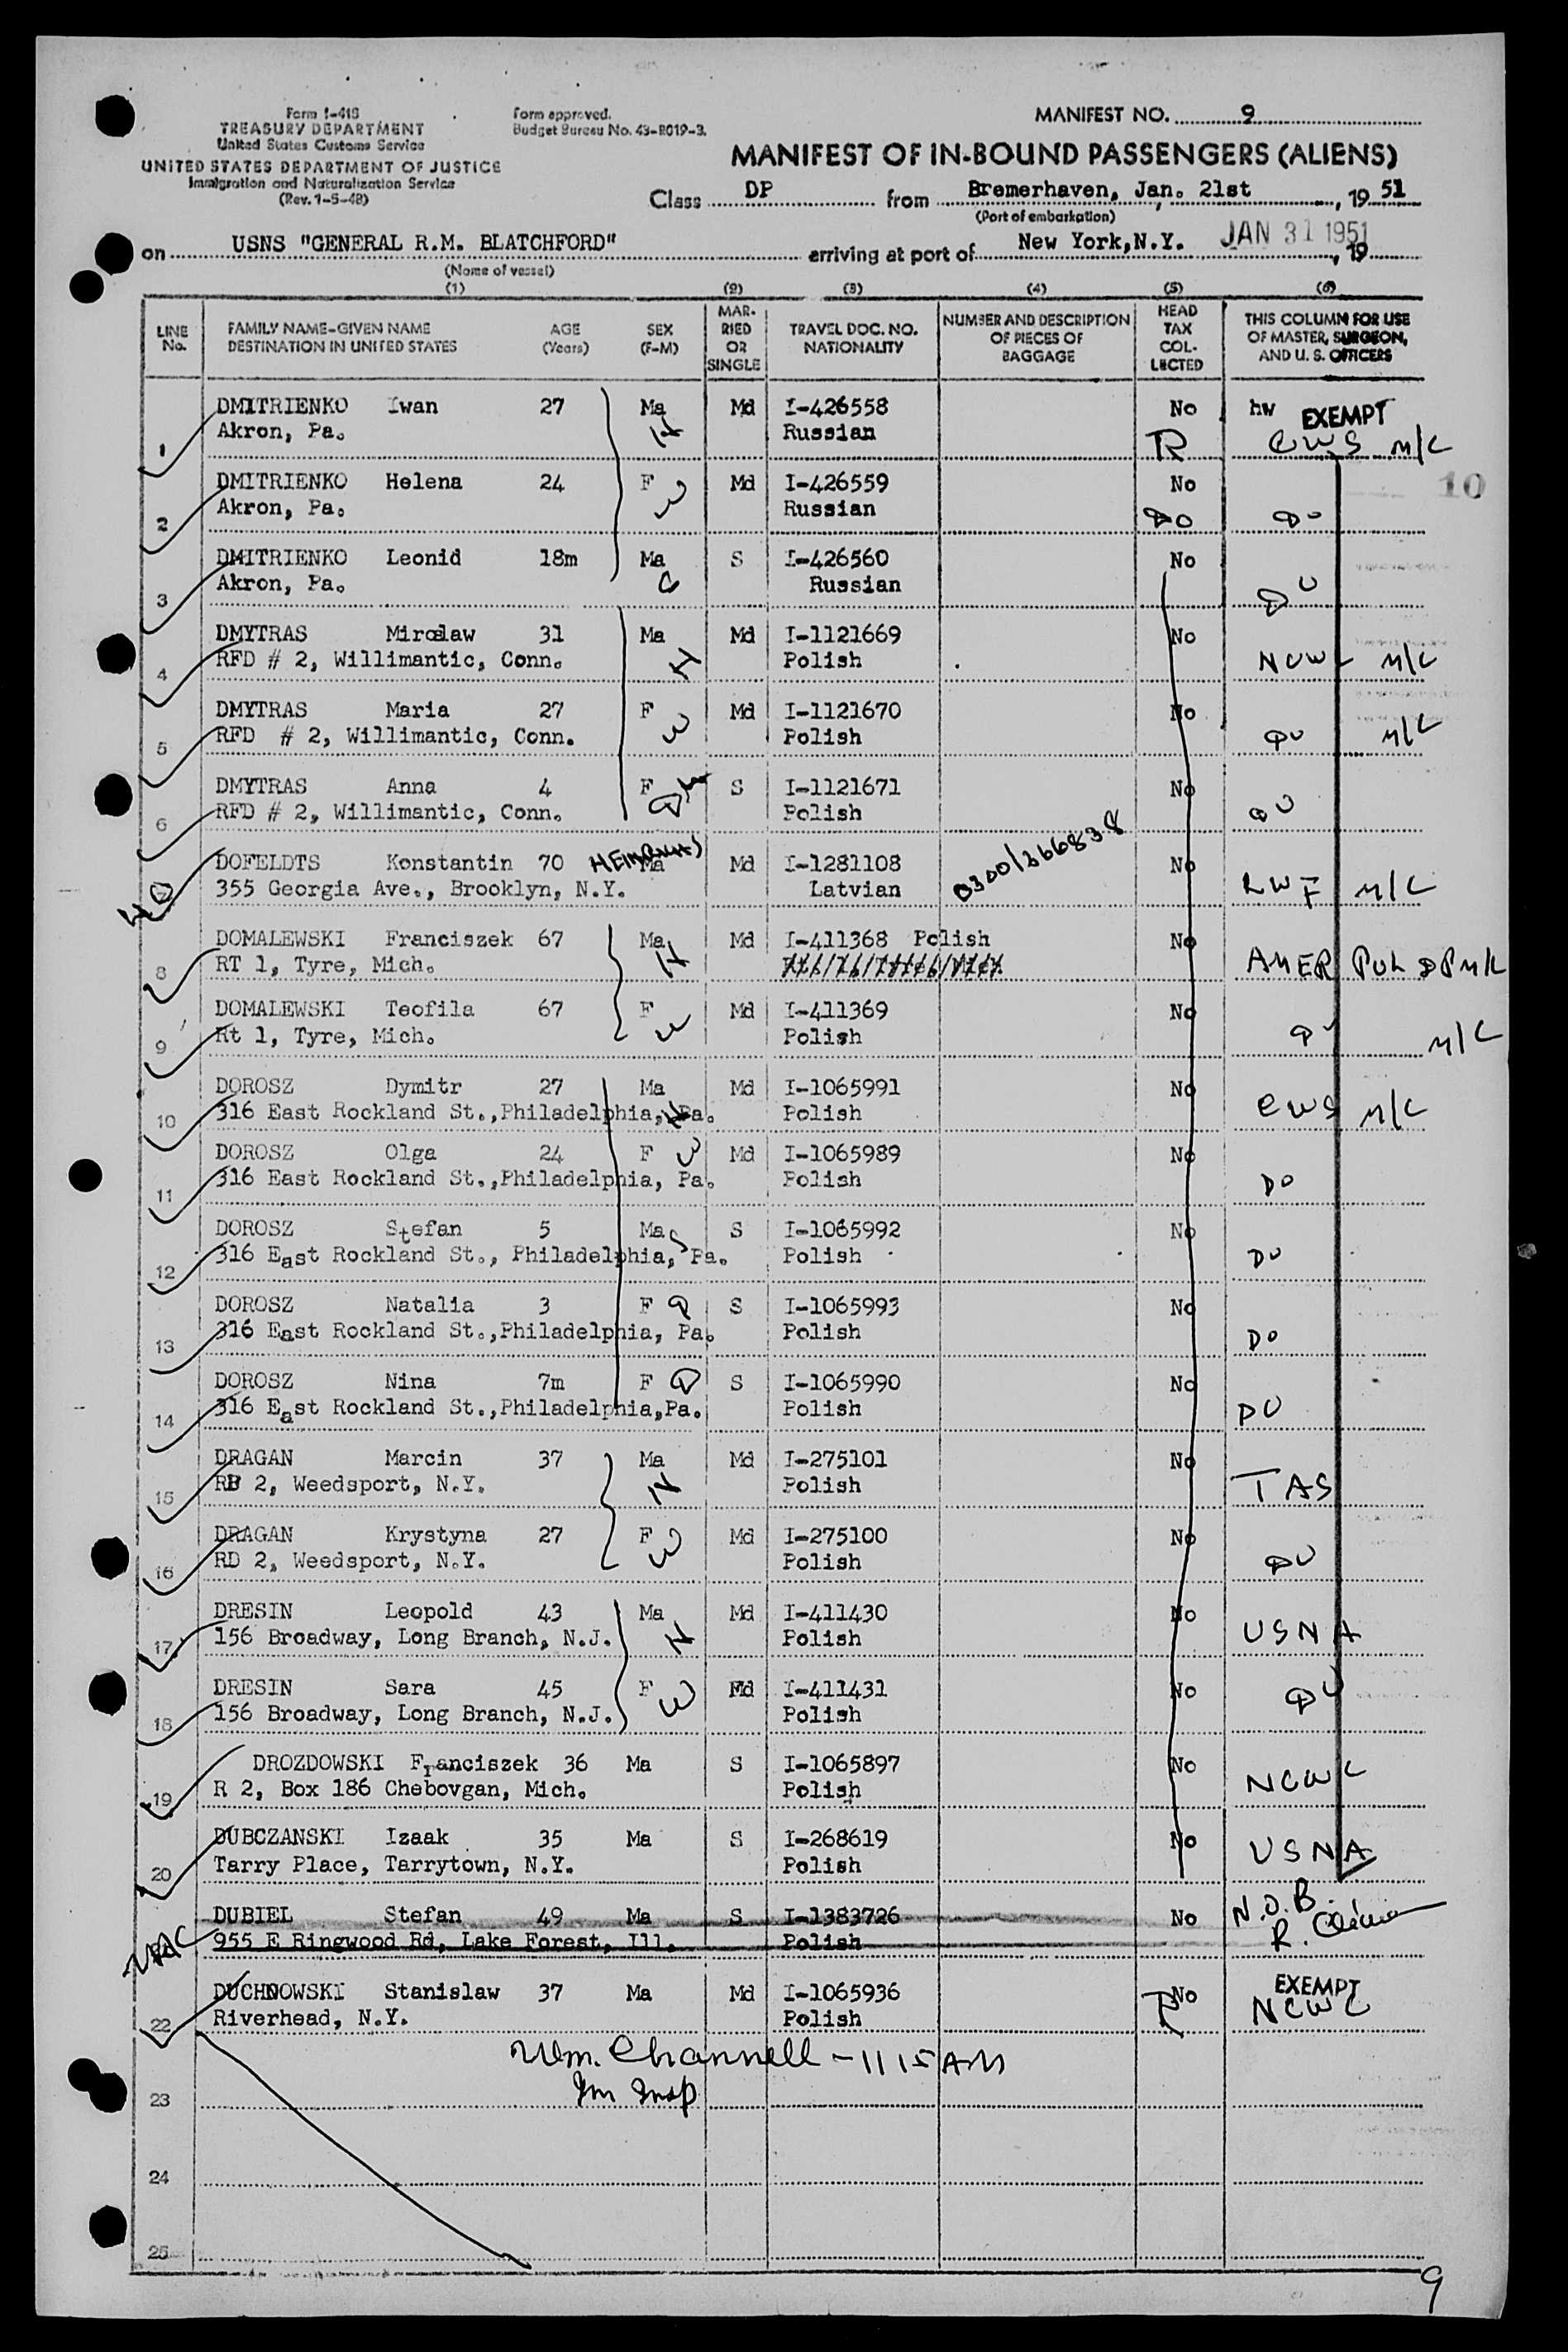 Form I-418
TREASURY DEPARTMENT
United States Customs Service
UNITED STATES DEPARTMENT OF JUSTICE
Immigration and Naturalization Service
(Rev. 1-5-48)
Form approved.
Budget Bureau No. 43-R019-3.
MANIFEST NO. 9
MANIFEST OF IN-BOUND PASSENGERS (ALIENS)
Class DP from Bremerhaven, Jan. 21st, 19 51
(Port of embarkation)
on USNS "GENERAL R.M. BLATCHFORD" arriving at port of New York,N.Y. JAN 31 1951, 19
(Name of vessel)
(1) (2) (3) (4) (5) (6)
LINE No. FAMILY NAME-GIVEN NAME DESTINATION IN UNITED STATES AGE (Years) SEX (F-M) MARRIED OR SINGLE TRAVEL DOC. NO. NATIONALITY NUMBER AND DESCRIPTION OF PIECES OF BAGGAGE HEAD TAX COLLECTED THIS COLUMN FOR USE OF MASTER, SURGEON, AND U. S. OFFICERS
DMITRIENKO Iwan 27 Ma Md I-426558 No hw EXEMPT
1 Akron, Pa. H Russian R CWS M/C
DMITRIENKO Helena 24 F W Md I-426559 No 10
2 Akron, Pa. Russian DO DO
DMITRIENKO Leonid 18m Ma S I-426560 No
3 Akron, Pa. Russian DO
DMYTRAS Miroslaw 31 Ma Md I-1121669 No
4 RFD # 2, Willimantic, Conn. H Polish NCWC M/C
DMYTRAS Maria 27 F W Md I-1121670 No
5 RFD # 2, Willimantic, Conn. Polish DO M/C
DMYTRAS Anna 4 F S I-1121671 No
6 RFD # 2, Willimantic, Conn. Polish DO
DOFELDTS Konstantin 70 Ma Md I-1281108 0300/266838 No
355 Georgia Ave., Brooklyn, N.Y. Latvian LWF M/C
DOMALEWSKI Franciszek 67 Ma H Md I-411368 Polish No
8 RT 1, Tyre, Mich. AMER POL DP M/C
DOMALEWSKI Teofila 67 F W Md I-411369 No
9 Rt 1, Tyre, Mich. Polish DO M/C
DOROSZ Dymitr 27 Ma Md I-1065991 No
10 316 East Rockland St.,Philadelphia, Pa. H Polish CWS M/C
DOROSZ Olga 24 F W Md I-1065989 No
11 316 East Rockland St.,Philadelphia, Pa. Polish DO
DOROSZ Stefan 5 Ma S S I-1065992 No
12 316 East Rockland St., Philadelphia, Pa. Polish DO
DOROSZ Natalia 3 F D S I-1065993 No
13 316 East Rockland St.,Philadelphia, Pa. Polish DO
DOROSZ Nina 7m F D S I-1065990 No
14 316 East Rockland St.,Philadelphia,Pa. Polish DO
DRAGAN Marcin 37 Ma Md I-275101 No
15 RD 2, Weedsport, N.Y. H Polish TAS
DRAGAN Krystyna 27 F W Md I-275100 No
16 RD 2, Weedsport, N.Y. Polish DO
DRESIN Leopold 43 Ma Md I-411430 No
17 156 Broadway, Long Branch, N.J. H Polish USNA
DRESIN Sara 45 F W Md I-411431 No
18 156 Broadway, Long Branch, N.J. Polish DO
DROZDOWSKI Franciszek 36 Ma S I-1065897 No
19 R 2, Box 186 Chebovgan, Mich. Polish NCWC
DUBCZANSKI Izaak 35 Ma S I-268619 No
20 Tarry Place, Tarrytown, N.Y. Polish USNA
DUBIEL Stefan 49 Ma S I-1383726 No N.O.B.
955 E Ringwood Rd, Lake Forest, Ill. Polish
DUCHNOWSKI Stanislaw 37 Ma Md I-1065936 No EXEMPT
22 Riverhead, N.Y. Polish NCWC
Wm. Channell - 11 15 AM
Im Insp
23
24
25
9